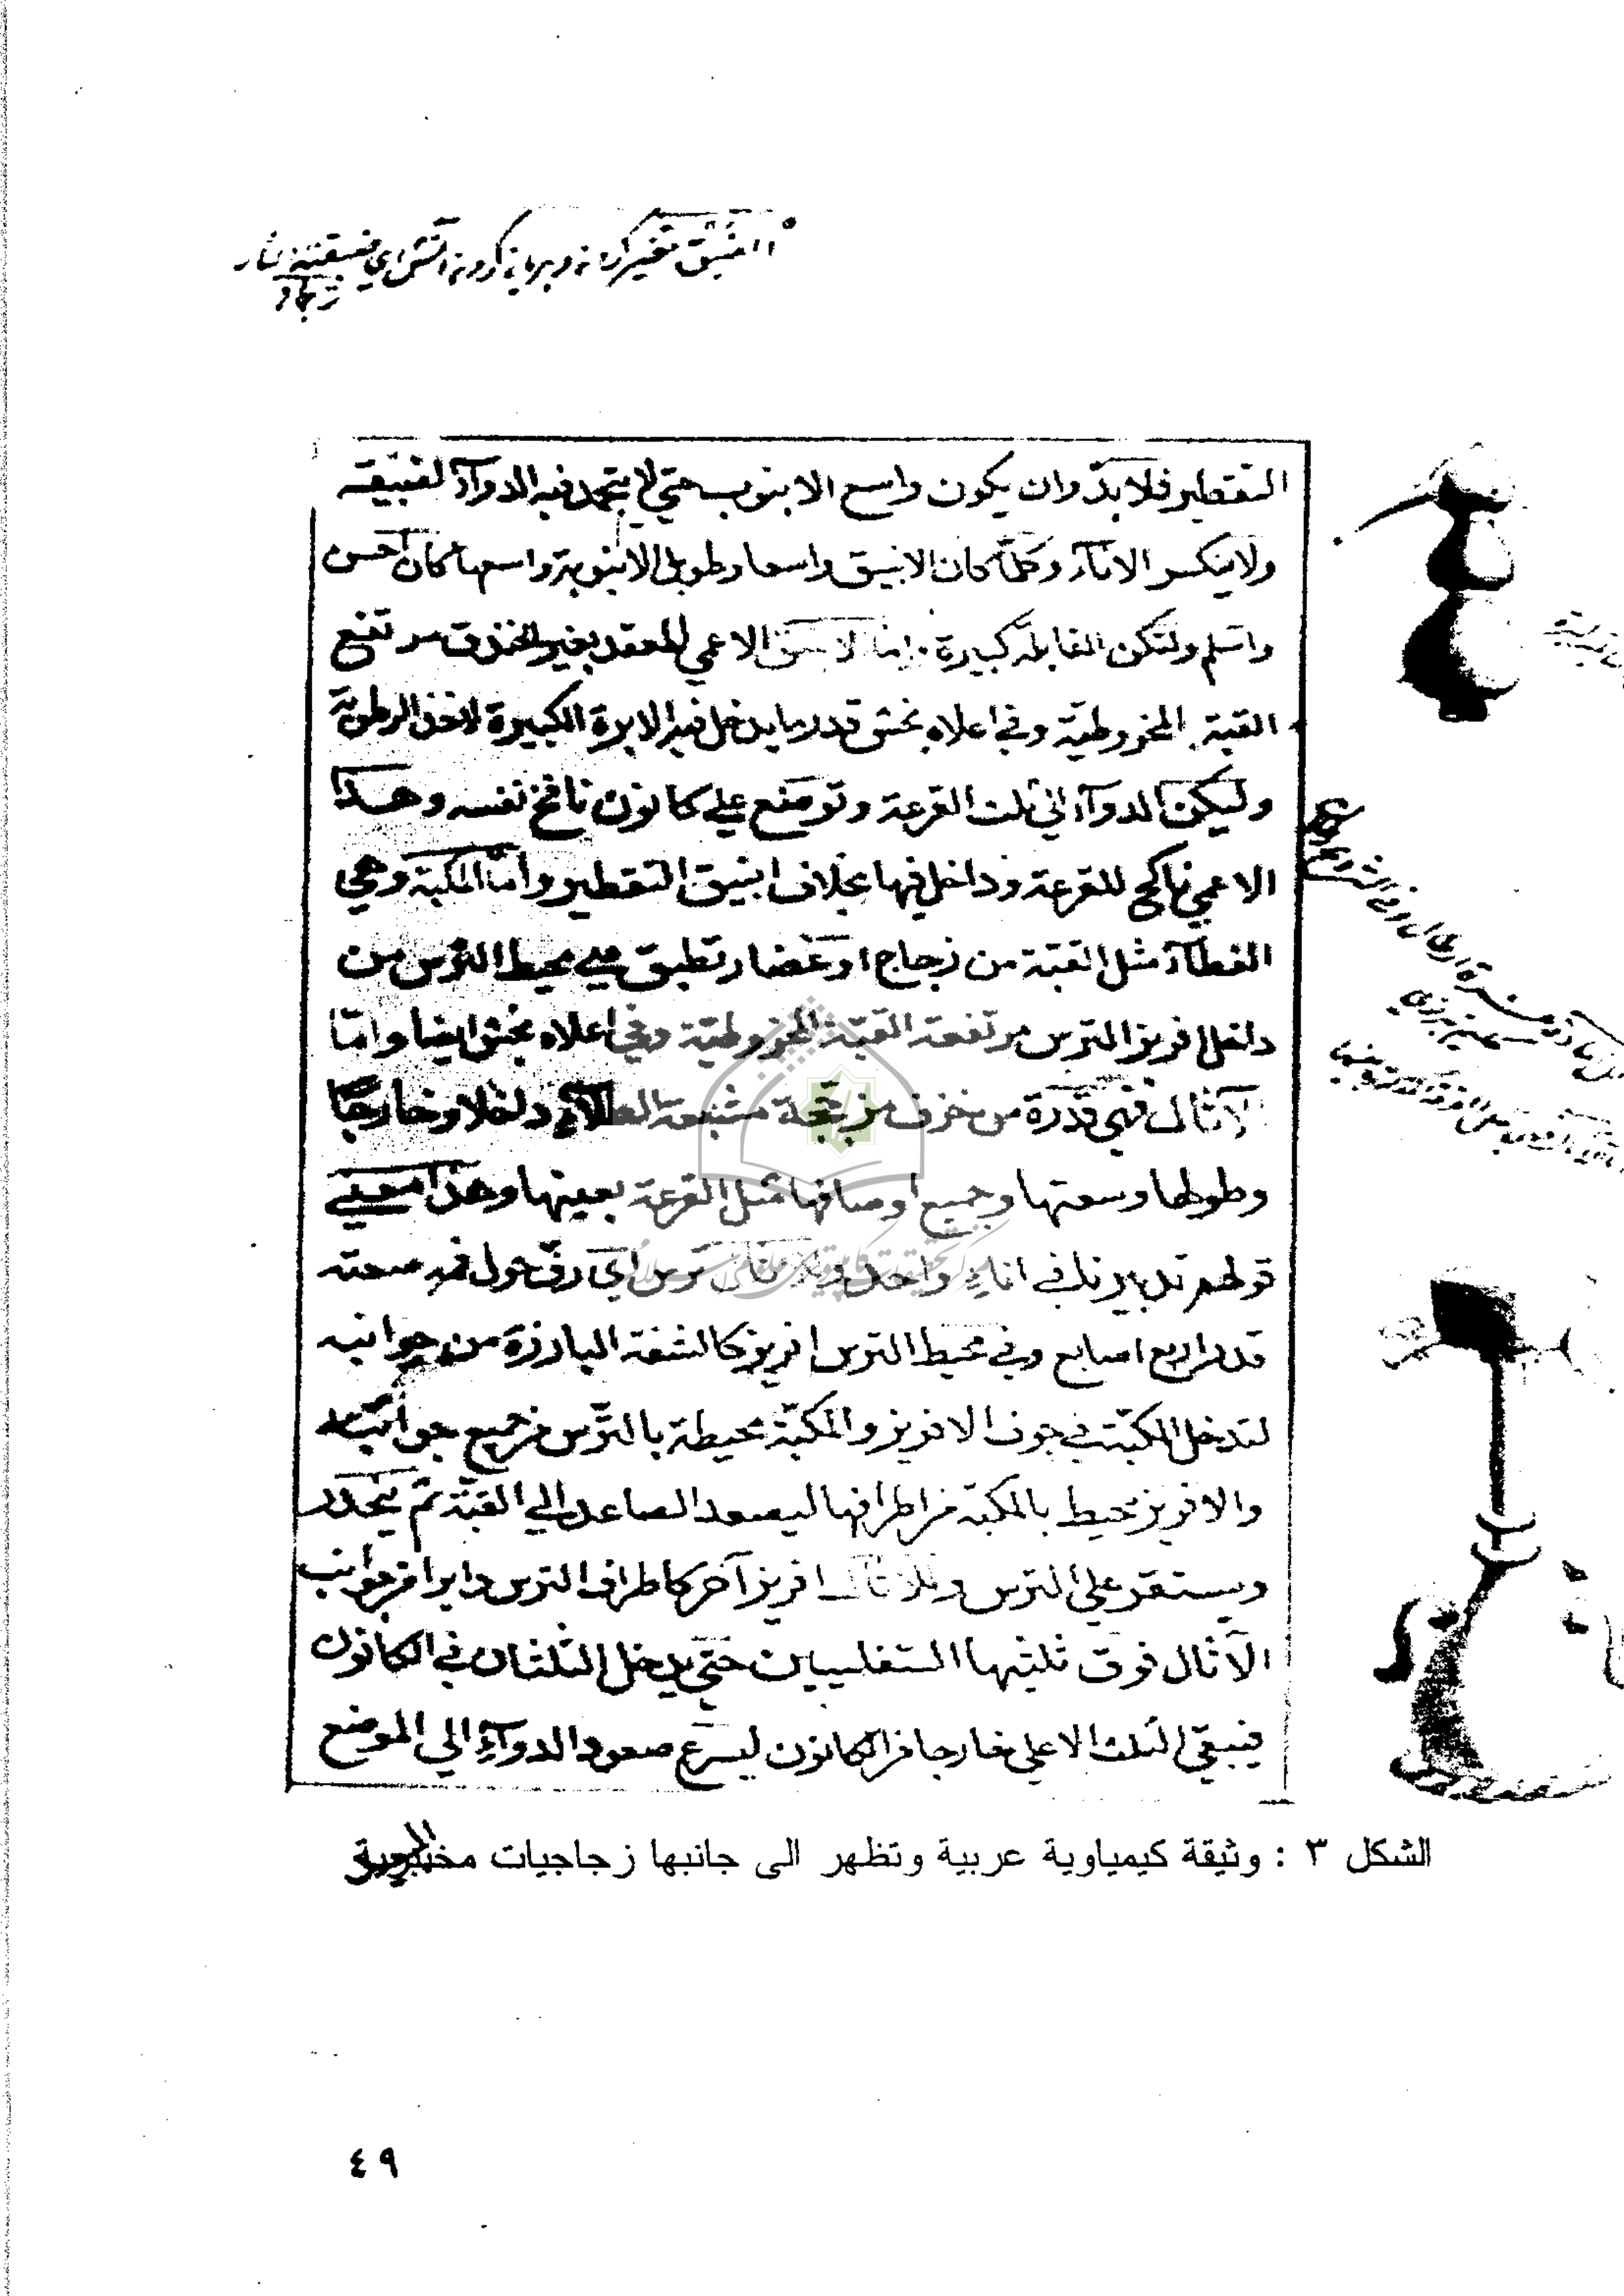 التقطير فلا بدّ وان يكون واسع الابنوب حتي لا يتجمد فيه الدوآء لضيقه
ولا ينكسر الانآء وكلّما كان الانبيق واسعا وطويل الانبوبة واسعها كان احسن
واسلم ولتكن القابلة كبيرة واما الانبيق الاعمي للمعقد بغير الخندق مرتفع
القبة المخروطيّة وفي اعلاه بخش قدر ما يدخل فيه الابرة الكبيرة لاخذ الرطوبة
وليكن الدوآء الي ثلث القرعة وتوضع علي كانون نافخ نفسه وهذا
الاعمي ناكح للقرعة وداخل فيها بخلاف انبيق التقطير وأمّا المكبة وهي
الغطآء مثل القبّة من زجاج او غضار تطبق علي محيط الترس من
داخل افريز الترس مرتفعة القبّة المخروطيّة وفي اعلاه بخش ايضا وامّا
الآثال فهي قدرة من خزف مزججة مشبعة الطلاء داخلا وخارجًا
وطولها وسعتها وجميع اوصافها مثل القرعة بعينها وهذا معني
قولهم تدبيرنا في اناء واحد وللاثال ترس اي رفّ حول فمه سعته
قدر اربع اصابع وفي محيط الترس افريز كالشفة البارزة من جوانبه
لتدخل المكبّة في جوف الافريز والمكبّة محيطة بالتّرس من جميع جوانبه
والافريز محيط بالمكبّة من اطرافها ليصعد الصاعد الي القبّة ثمّ ينحدر
ويستقر علي الترس وللاثال افريز آخر كاطراف الترس دايرا من جوانب
الآثال فوق ثلثيها السفليين حتي يدخل الثلثان في الكانون
فيبقي الثلث الاعلي خارجا من الكانون ليسرع صعود الدوآء الي الموضع
الشكل ٣ : وثيقة كيمياوية عربية وتظهر الى جانبها زجاجيات مختبرية
٤٩